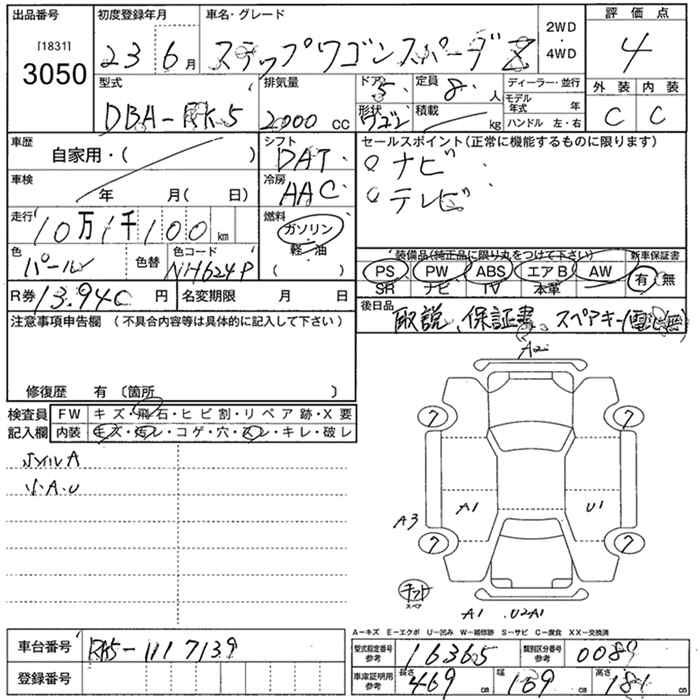 出品番号 初度登録年月 車名・グレード 2WD・4WD 評価点
[1831] 3050 23 6月 ステップワゴンスパーダ Z 4
型式 排気量 ドア 定員 ディーラー・並行 外装 内装
DBA-RK5 2000 cc 5 8人 モデル年式 年 C C
形状 ワゴン 積載 kg ハンドル 左・右
車歴 シフト セールスポイント(正常に機能するものに限ります)
自家用・( ) DAT ナビ
車検 冷房 テレビ
年 月(日) AAC
走行 燃料
10万1千100km ガソリン
軽・油
( )
色 色替 色コード 装備品(純正品に限り丸をつけて下さい) 新車保証書
パール NH624P PS PW ABS エアB AW 有・無
SR ナビ TV 本革
R券 13.940円 名変期限 月 日 後日品
取説、保証書、スペアキー
注意事項申告欄 (不具合内容等は具体的に記入して下さい)
修復歴 有 〔箇所 〕
検査員 FW キズ・飛石・ヒビ割・リペア跡・X要
記入欄 内装 キズ・汚レ・コゲ・穴・スレ・キレ・破レ
ホイルA
小A.U
A2
7 7
A1 U1
A3
7 7
スペア
A1 U2A1
A-キズ E-エクボ U-凹み W-補修跡 S-サビ C-腐食 XX-交換済
車台番号 RK5-1117139 型式指定番号 参考 16365 類別区分番号 参考 0089
登録番号 車庫証明用 参考 長さ 469cm 幅 169cm 高さ 181cm